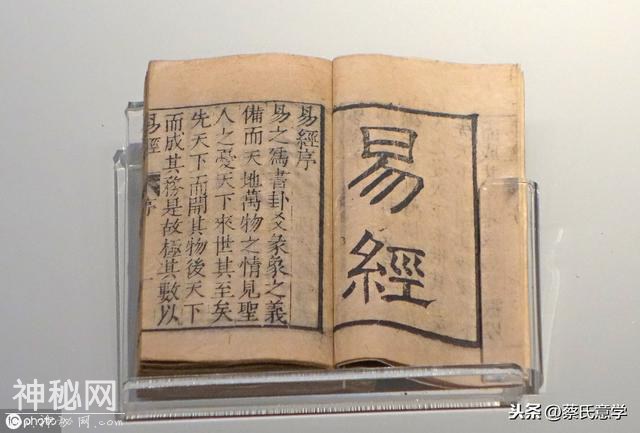 易經
易經序
易之為書卦爻彖象之義
備而天地萬物之情見聖
人之憂天下來世其至矣
先天下而開其物後天下
而成其務是故極其數以
易經 序
神秘网
photo
头条@蔡氏意学